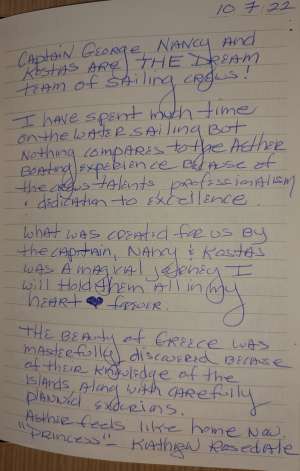 10 7 22
Captain George, Nancy and
Kostas are, THE DREAM
team of sailing crews!
I have spent much time
on the water sailing but
nothing compares to the Aether
boating experience because of
the crews talents professionalism
+ dedication to excellence.
What was created for us by
the captain, Nancy & Kostas
was a magical journey I
will hold them all in my
heart ♥ forever.
THE BEAUTY of GREECE was
masterfully discovered because
of their knowledge of the
islands, along with carefully
planned excurions.
Aether feels like home now.
"Princess" - Kathryn Rosedale